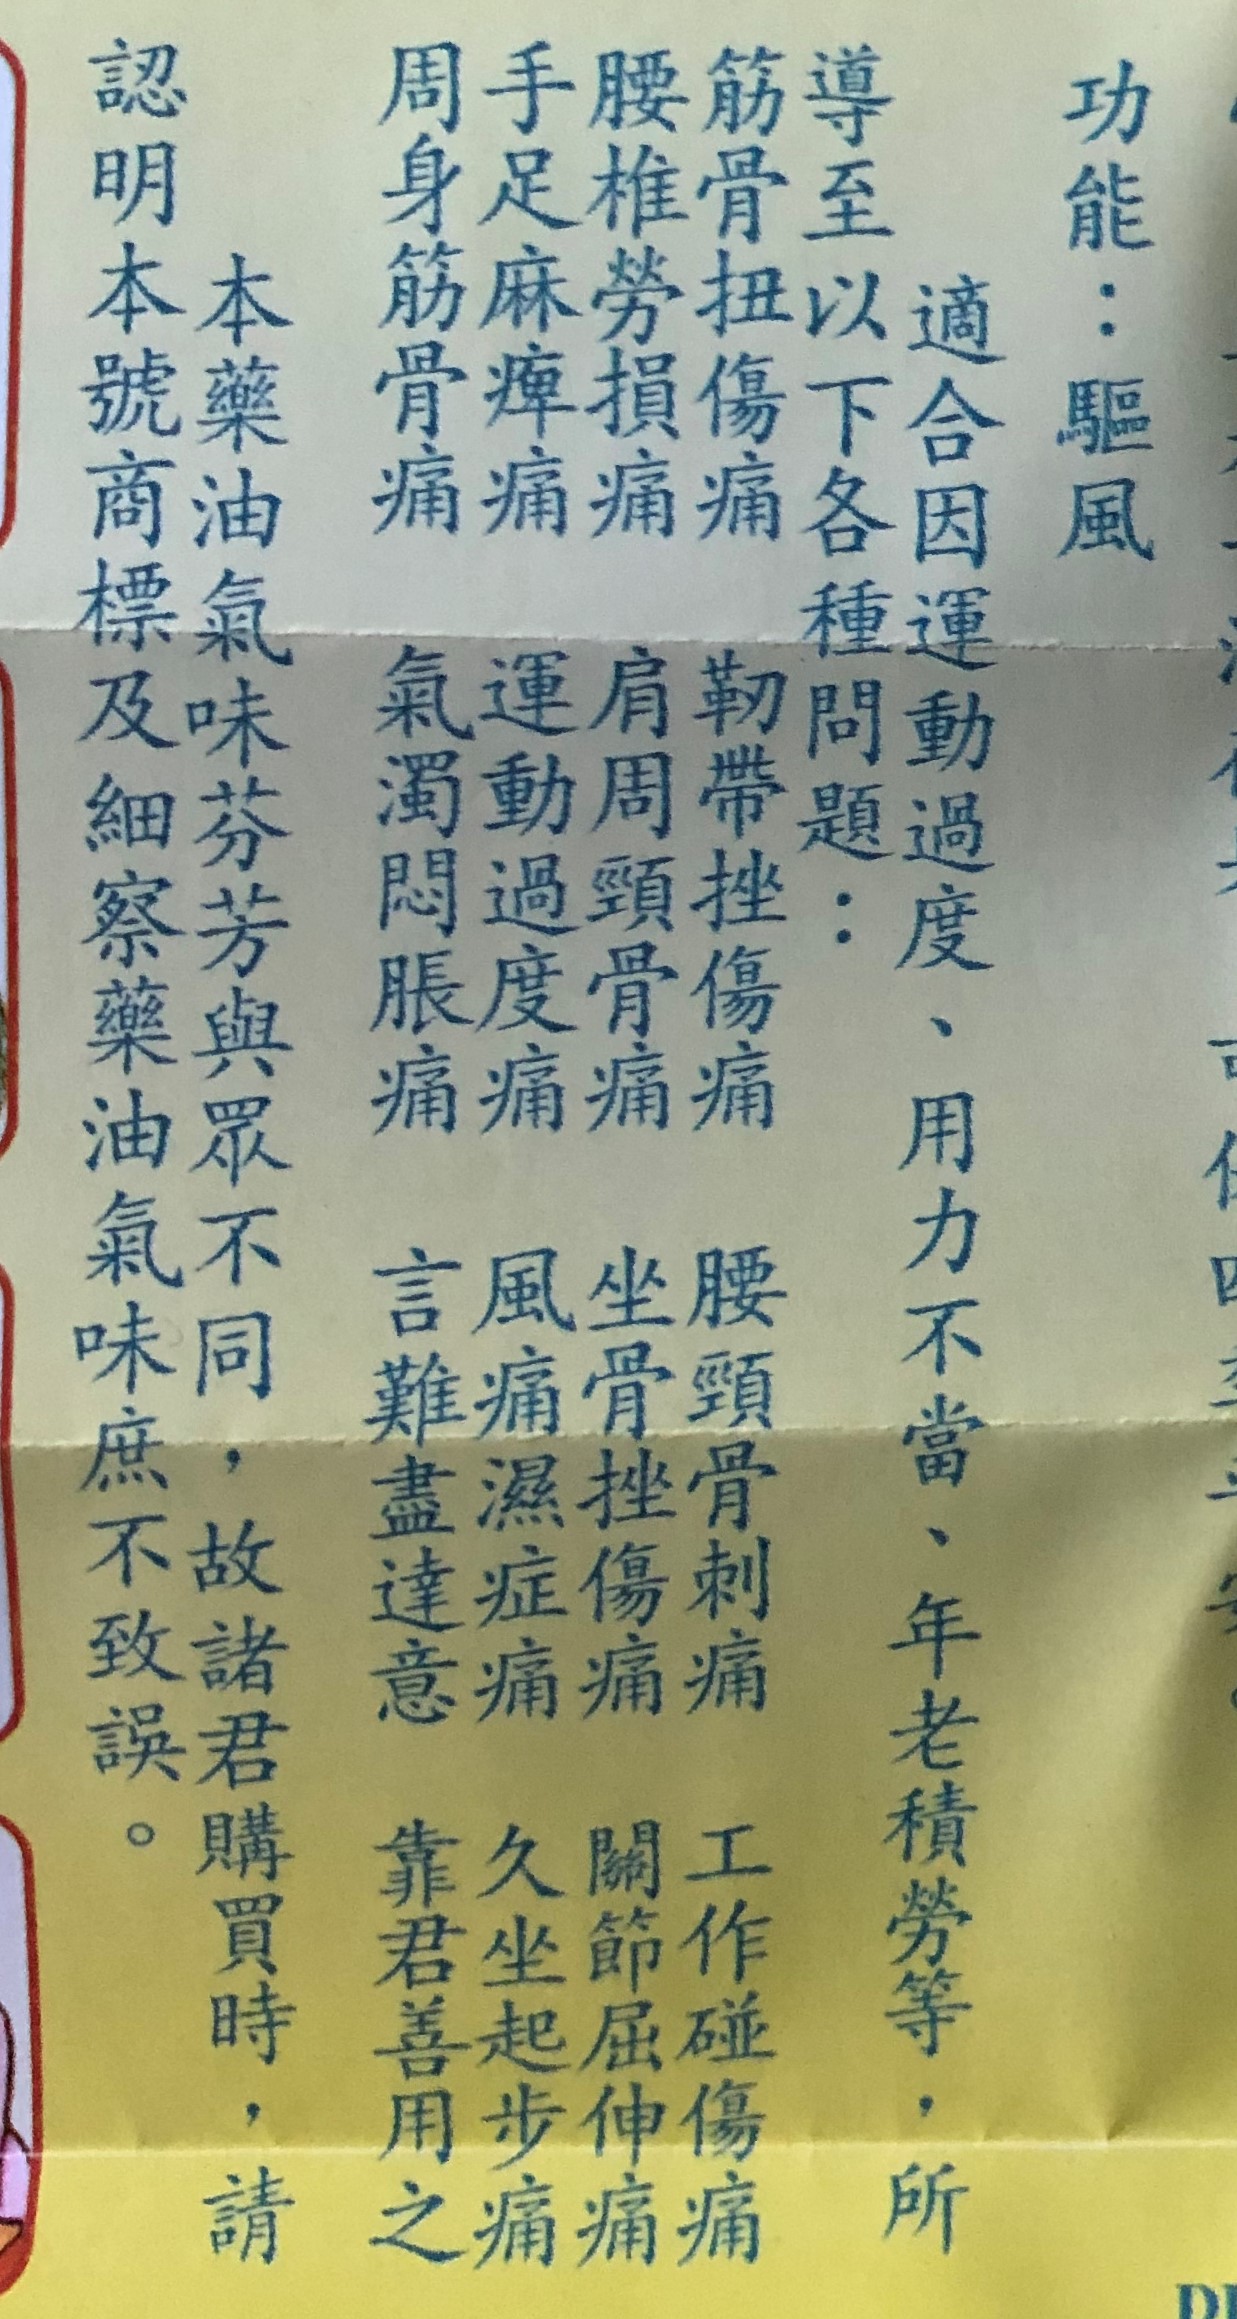 功能：驅風
適合因運動過度、用力不當、年老積勞等，所
導至以下各種問題：
筋骨扭傷痛 韌帶挫傷痛 腰頸骨刺痛 工作碰傷痛
腰椎勞損痛 肩周頸骨痛 坐骨挫傷痛 關節屈伸痛
手足麻痺痛 運動過度痛 風痛濕症痛 久坐起步痛
周身筋骨痛 氣濁悶脹痛 言難盡達意 靠君善用之
本藥油氣味芬芳與眾不同，故諸君購買時，請
認明本號商標及細察藥油氣味庶不致誤。